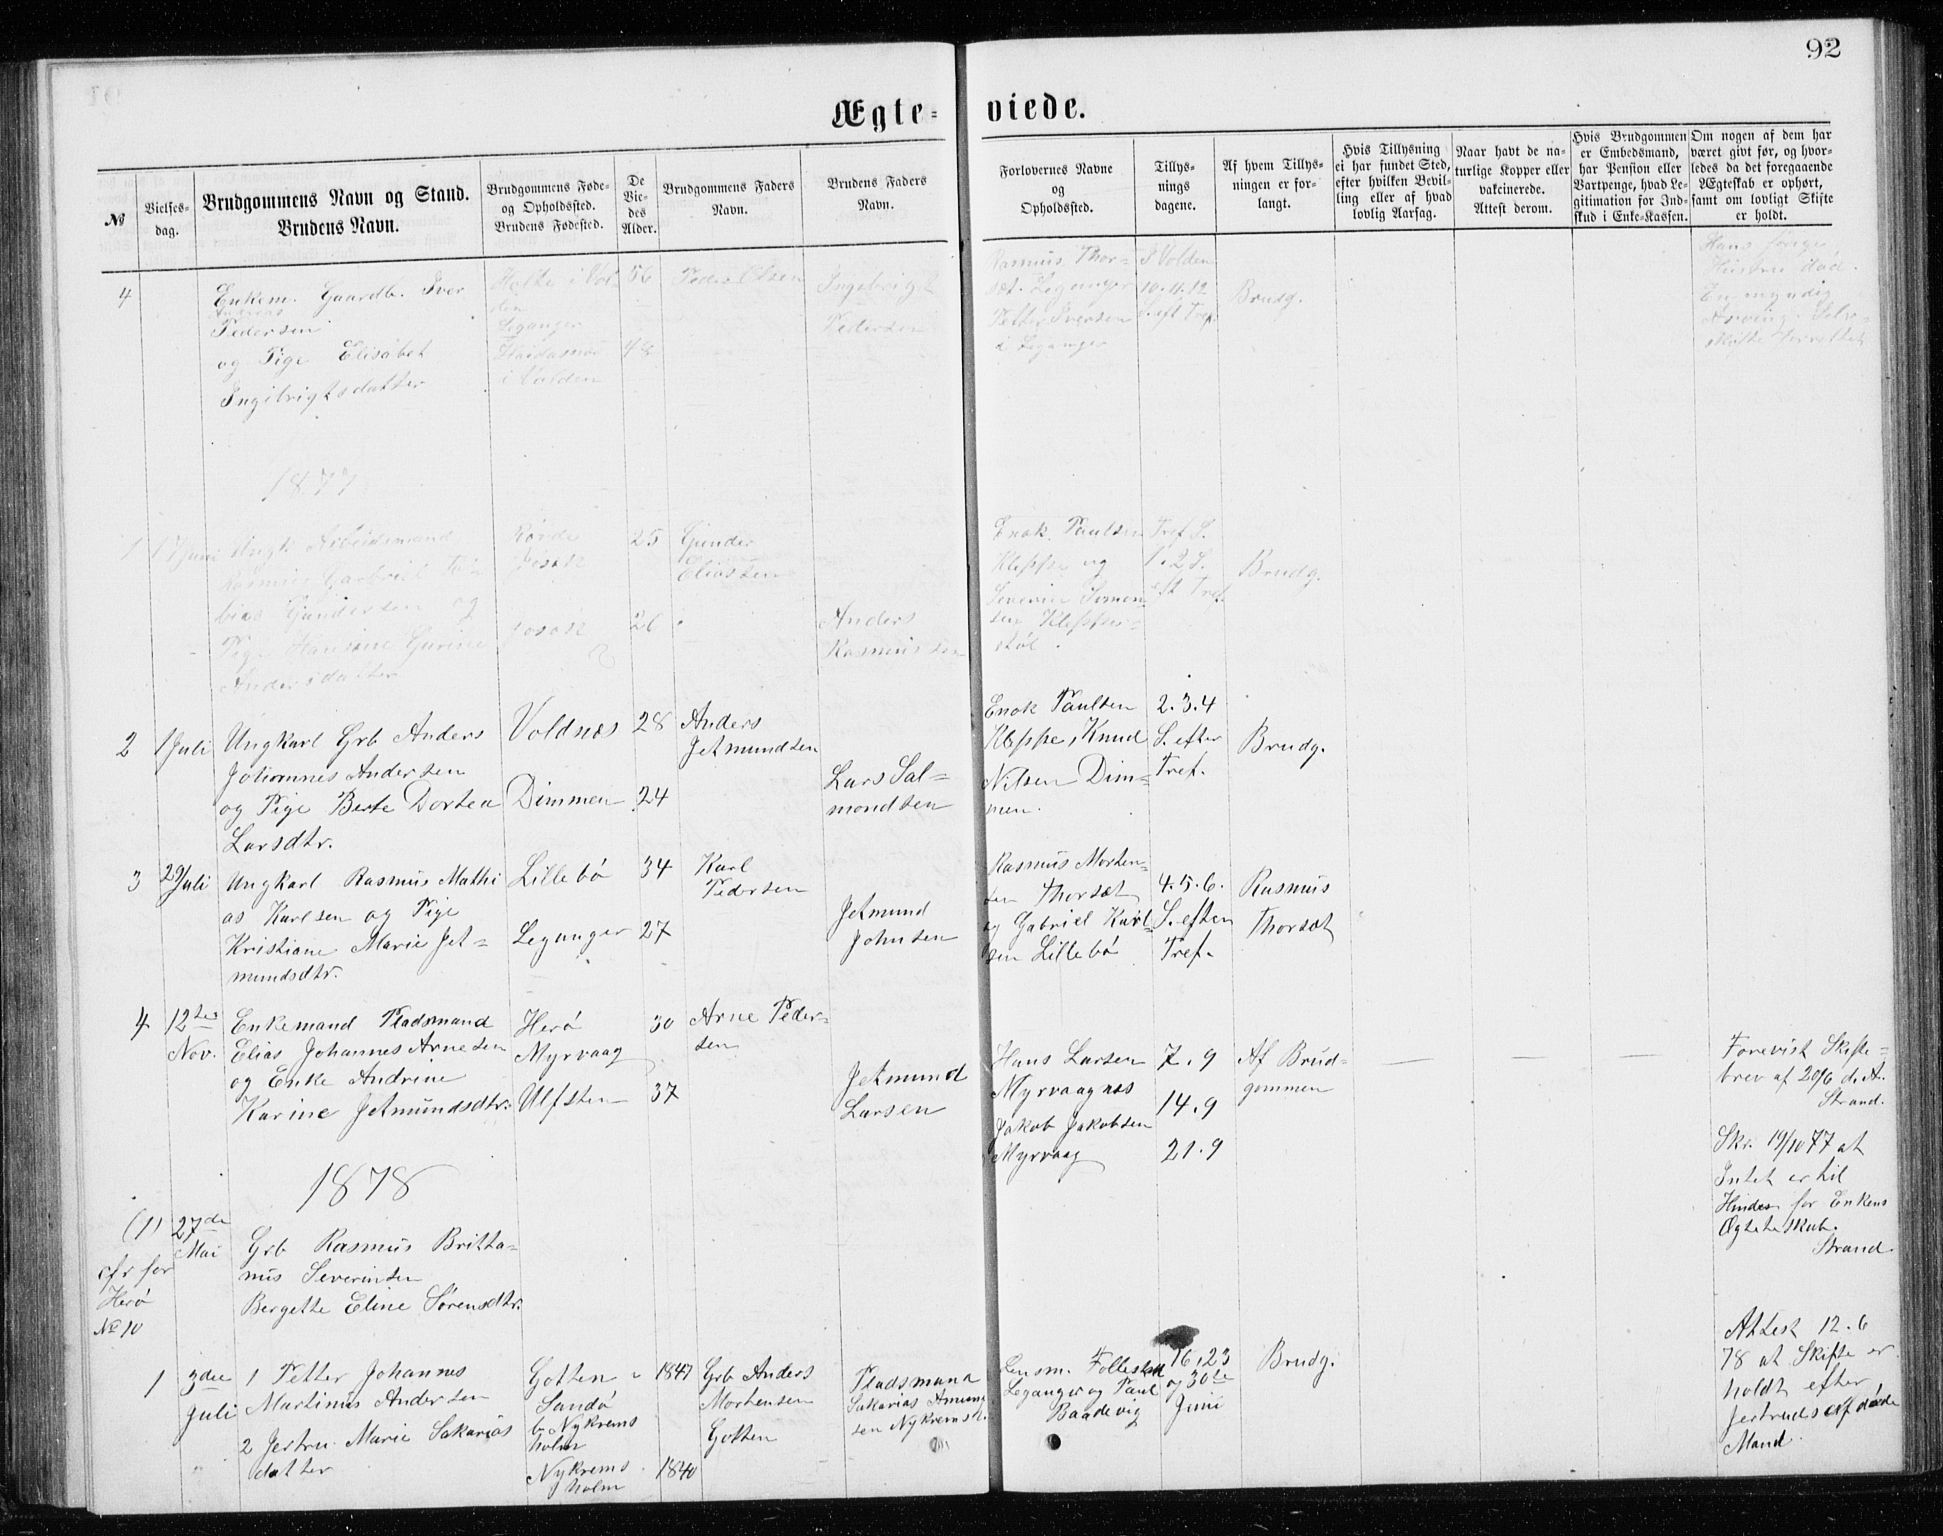 92
Ægte-
viede.
№
Vielses-
dag.
Brudgommens Navn og Stand.
Brudens Navn.
Brudgommens Føde-
og Opholdssted.
Brudens Fødested.
De
Vie-
des
Alder.
Brudgommens Faders
Navn.
Brudens Faders
Navn.
Forlovernes Navne
og
Opholdssted.
Tillys-
nings
dagene.
Af hvem Tillys-
ningen er for-
langt.
Hvis Tillysning
ei har fundet Sted,
efter hvilken Bevil-
ling eller af hvad
lovlig Aarsag.
Naar havt de na-
turlige Kopper eller
vakcinerede.
Attest derom.
Hvis Brudgommen
er Embedsmand,
har Pension eller
Vartpenge, hvad Le-
gitimation for Ind-
skud i Enke-Kassen.
Om nogen af dem har
været givt før, og hvor-
ledes da det foregaaende
Ægteskab er ophørt,
samt om lovligt Skifte
er holdt.
4
Enkem. Gaardb. Iver
Andreas
Pedersen
og Pige Elisabet
Ingebrigtsdatter
Leganger
i Volden
56
48
Peder Olsen
Ingebrigt
Pedersen
Rasmus Thor-
sæt. Leganger
Petter Iversen
i Leganger
I Volden
10. 11. 12
S. eft Tref.
Brudg.
Hans forige
Hustru død.
1877
1
17 Juni
Ungk Arbeidsmand
Rasmus Gabriel To-
bias Gundersen og
Pige Hansine Gurine
Andersdatter
25
26
Gunder
Eliassen
Anders
Rasmussen
Enok Paulsen
Kleppe og
Severin Simon-
sen Klepper-
støl.
Tref S.
1. 2 S.
eft Tref.
Brudg.
2
1 Juli
Ungkarl Grb Anders
Johannes Andersen
og Pige Berte Dortea
Larsdtr.
Voldnæs
Dimmen
28
24
Anders
Jetmundsen
Lars Sal-
mondsen
Enok Paulsen
Kleppe, Knud
Nilsen Dim-
men.
2. 3. 4
S. efter
Tref.
Brudg.
3
29 Juli
Ungkarl Rasmus Mathi
as Karlsen og Pige
Kristiane Marie Jet-
mundsdtr.
Lillebø
Leganger
34
27
Karl
Pedersen
Jetmund
Johnsen
Rasmus Morten-
sen Thorsæt
og Gabriel Karl-
sen Lillebø
4. 5. 6.
S. efter
Tref.
Rasmus
Thorsæt
4
12te
Nov.
Enkemand Pladsmand
Elias Johannes Arnesen
og Enke Andrine
Karine Jetmundsdtr.
Herø
Myrvaag
Ulfsten
30
37
Arne Peder-
sen
Jetmund
Larsen
Hans Larsen
Myrvaagnæs
Jakob Jakobsen
Myrvaag
7.9
14.9
21.9
Af Brud-
gommen
Forevist Skifte-
brev af 20/6 d.A.
Strand.
Skr. 19/10 77 at
Intet er til
Hinder for Enkens
Ægteskab.
Strand
1878
(1)
cfr for
Herø
№ 10
27de
Mai
Grb Rasmus Britta-
nus Severinsen
Bergette Eline Sørensdtr.
1
3die
Juli
1 Petter Johannes
Martinus Andersen
2 Jertru Marie Sakarias
datter
Gotten
Sandø
b. Nykrems
holm
Nykrems
holm
1847
1840
Grb Anders
Mortensen
Gotten
Pladsmand
Sakarias Amund
sen Nykremsh.
Lensm. Follestad
Leganger og Paul
Baadevig
16, 23
og 30te
Juni
Brudg.
Attest 12.6
78 at Skifte er
holdt efter
Jertruds afdøde
Mand.